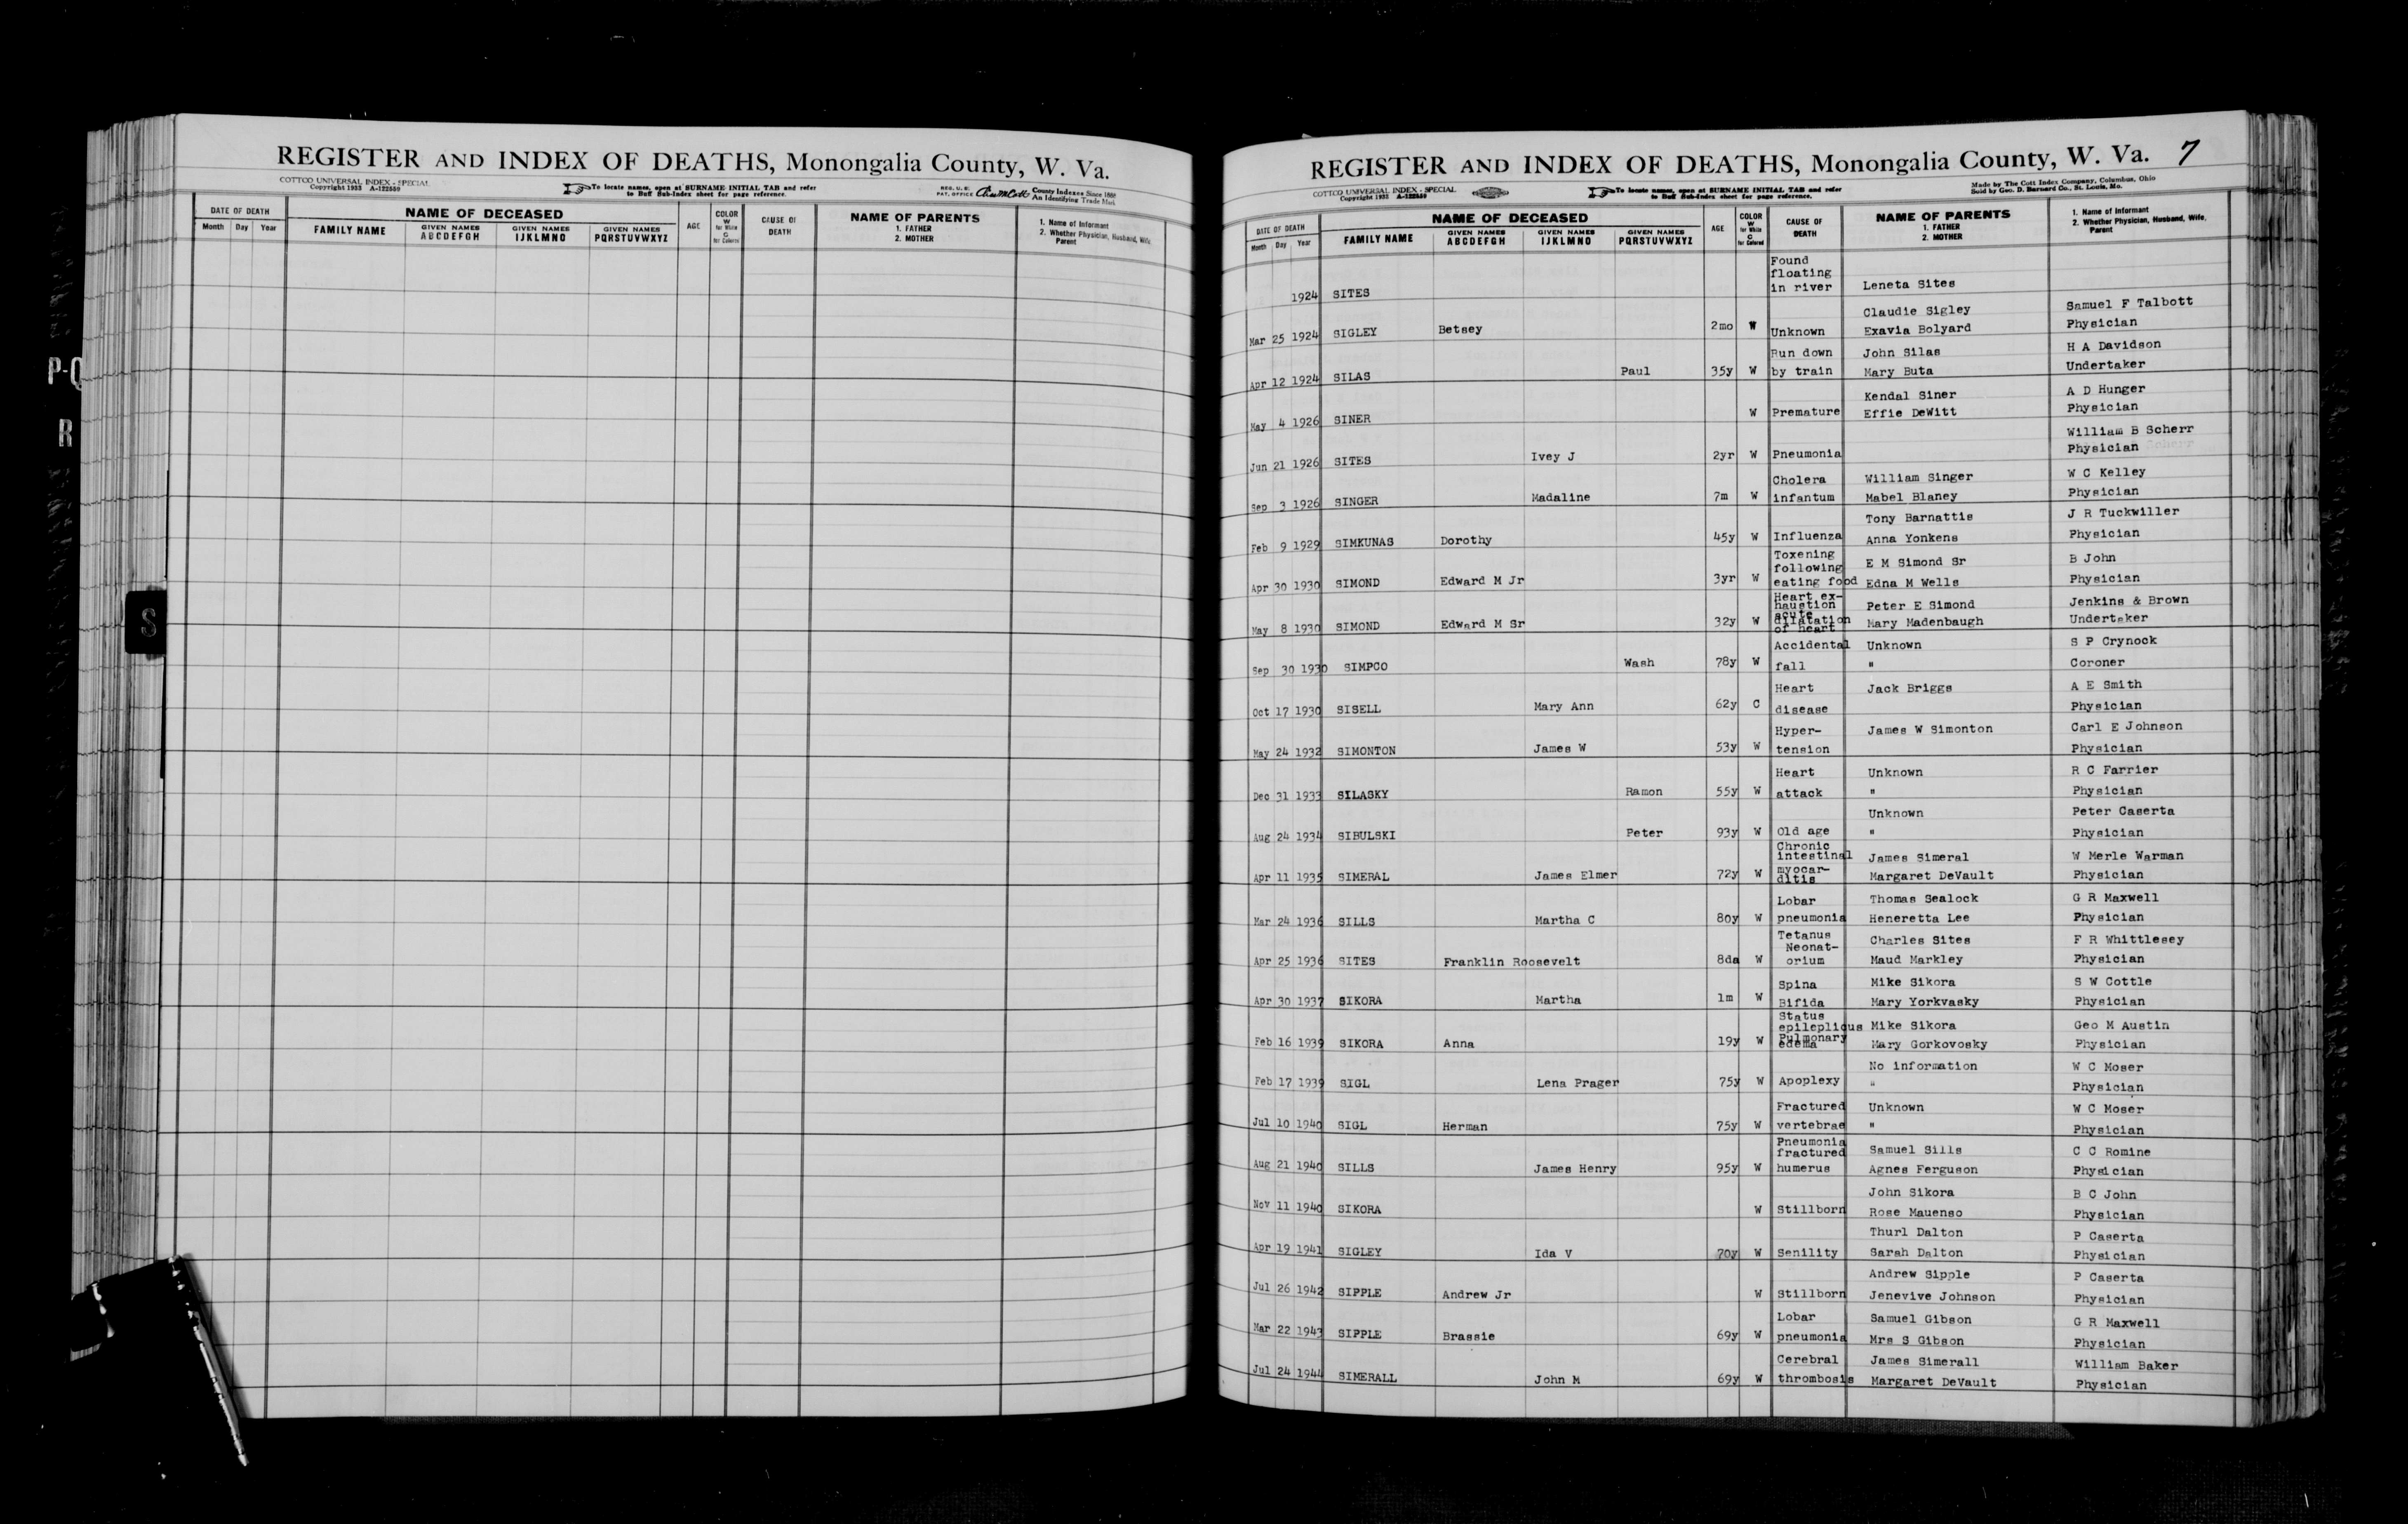 REGISTER AND INDEX OF DEATHS, Monongalia County, W. Va.
COTTCO UNIVERSAL INDEX - SPECIAL
Copyright 1933 A-122539
To locate names, open at SURNAME INITIAL TAB and refer
to Buff Sub-Index sheet for page reference.
REG. U. S.
PAT. OFFICE
County Indexes Since 1888
An Identifying Trade Mark
DATE OF DEATH NAME OF DECEASED AGE COLOR W for White C for Colored CAUSE OF DEATH NAME OF PARENTS 1. FATHER 2. MOTHER 1. Name of Informant 2. Whether Physician, Husband, Wife, Parent
Month Day Year FAMILY NAME GIVEN NAMES ABCDEFGH GIVEN NAMES IJKLMNO GIVEN NAMES PQRSTUVWXYZ
P-Q
R
S
REGISTER AND INDEX OF DEATHS, Monongalia County, W. Va. 7
COTTCO UNIVERSAL INDEX - SPECIAL
Copyright 1933 A-122539
To locate names, open at SURNAME INITIAL TAB and refer
to Buff Sub-Index sheet for page reference.
Made by The Cott Index Company, Columbus, Ohio
Sold by Geo. D. Barnard Co., St. Louis, Mo.
DATE OF DEATH NAME OF DECEASED AGE COLOR W for White C for Colored CAUSE OF DEATH NAME OF PARENTS 1. FATHER 2. MOTHER 1. Name of Informant 2. Whether Physician, Husband, Wife, Parent
Month Day Year FAMILY NAME GIVEN NAMES ABCDEFGH GIVEN NAMES IJKLMNO GIVEN NAMES PQRSTUVWXYZ
Found
floating
1924 SITES in river Leneta Sites
Claudie Sigley Samuel F Talbott
Mar 25 1924 SIGLEY Betsey 2mo W Unknown Exavia Bolyard Physician
Run down John Silas H A Davidson
Apr 12 1924 SILAS Paul 35y W by train Mary Buta Undertaker
Kendal Siner A D Hunger
May 4 1926 SINER W Premature Effie DeWitt Physician
William B Scherr
Jun 21 1926 SITES Ivey J 2yr W Pneumonia Physician
Cholera William Singer W C Kelley
Sep 3 1926 SINGER Madaline 7m W infantum Mabel Blaney Physician
Tony Barnattis J R Tuckwiller
Feb 9 1929 SIMKUNAS Dorothy 45y W Influenza Anna Yonkens Physician
Toxening
following E M Simond Sr B John
Apr 30 1930 SIMOND Edward M Jr 3yr W eating food Edna M Wells Physician
Heart ex-
haustion Peter E Simond Jenkins & Brown
acute
May 8 1930 SIMOND Edward M Sr 32y W dilatation Mary Madenbaugh Undertaker
of heart
Accidental Unknown S P Crynock
Sep 30 1930 SIMPCO Wash 78y W fall " Coroner
Heart Jack Briggs A E Smith
Oct 17 1930 SISELL Mary Ann 62y C disease Physician
Hyper- James W Simonton Carl E Johnson
May 24 1932 SIMONTON James W 53y W tension Physician
Heart Unknown R C Farrier
Dec 31 1933 SILASKY Ramon 55y W attack " Physician
Unknown Peter Caserta
Aug 24 1934 SIBULSKI Peter 93y W Old age " Physician
Chronic
intestinal James Simeral W Merle Warman
Apr 11 1935 SIMERAL James Elmer 72y W myocar- Margaret DeVault Physician
ditis
Lobar Thomas Sealock G R Maxwell
Mar 24 1936 SILLS Martha C 80y W pneumonia Heneretta Lee Physician
Tetanus
Neonat- Charles Sites F R Whittlesey
Apr 25 1936 SITES Franklin Roosevelt 8da W orium Maud Markley Physician
Spina Mike Sikora S W Cottle
Apr 30 1937 SIKORA Martha 1m W Bifida Mary Yorkvasky Physician
Status
epilepliqus Mike Sikora Geo M Austin
Feb 16 1939 SIKORA Anna 19y W Pulmonary Mary Gorkovosky Physician
edema
No information W C Moser
Feb 17 1939 SIGL Lena Prager 75y W Apoplexy " Physician
Fractured Unknown W C Moser
Jul 10 1940 SIGL Herman 75y W vertebrae " Physician
Pneumonia
fractured Samuel Sills C C Romine
Aug 21 1940 SILLS James Henry 95y W humerus Agnes Ferguson Physician
John Sikora B C John
Nov 11 1940 SIKORA W Stillborn Rose Mauenso Physician
Thurl Dalton P Caserta
Apr 19 1941 SIGLEY Ida V 70y W Senility Sarah Dalton Physician
Andrew Sipple P Caserta
Jul 26 1942 SIPPLE Andrew Jr W Stillborn Jenevive Johnson Physician
Lobar Samuel Gibson G R Maxwell
Mar 22 1943 SIPPLE Brassie 69y W pneumonia Mrs S Gibson Physician
Cerebral James Simerall William Baker
Jul 24 1944 SIMERALL John M 69y W thrombosis Margaret DeVault Physician